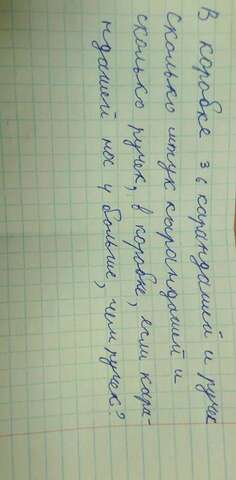 В коробке 36 карандашей и ручек
Сколько штук карандашей и
сколько ручек, в коробке, если кара-
ндашей на 4 больше, чем ручек?